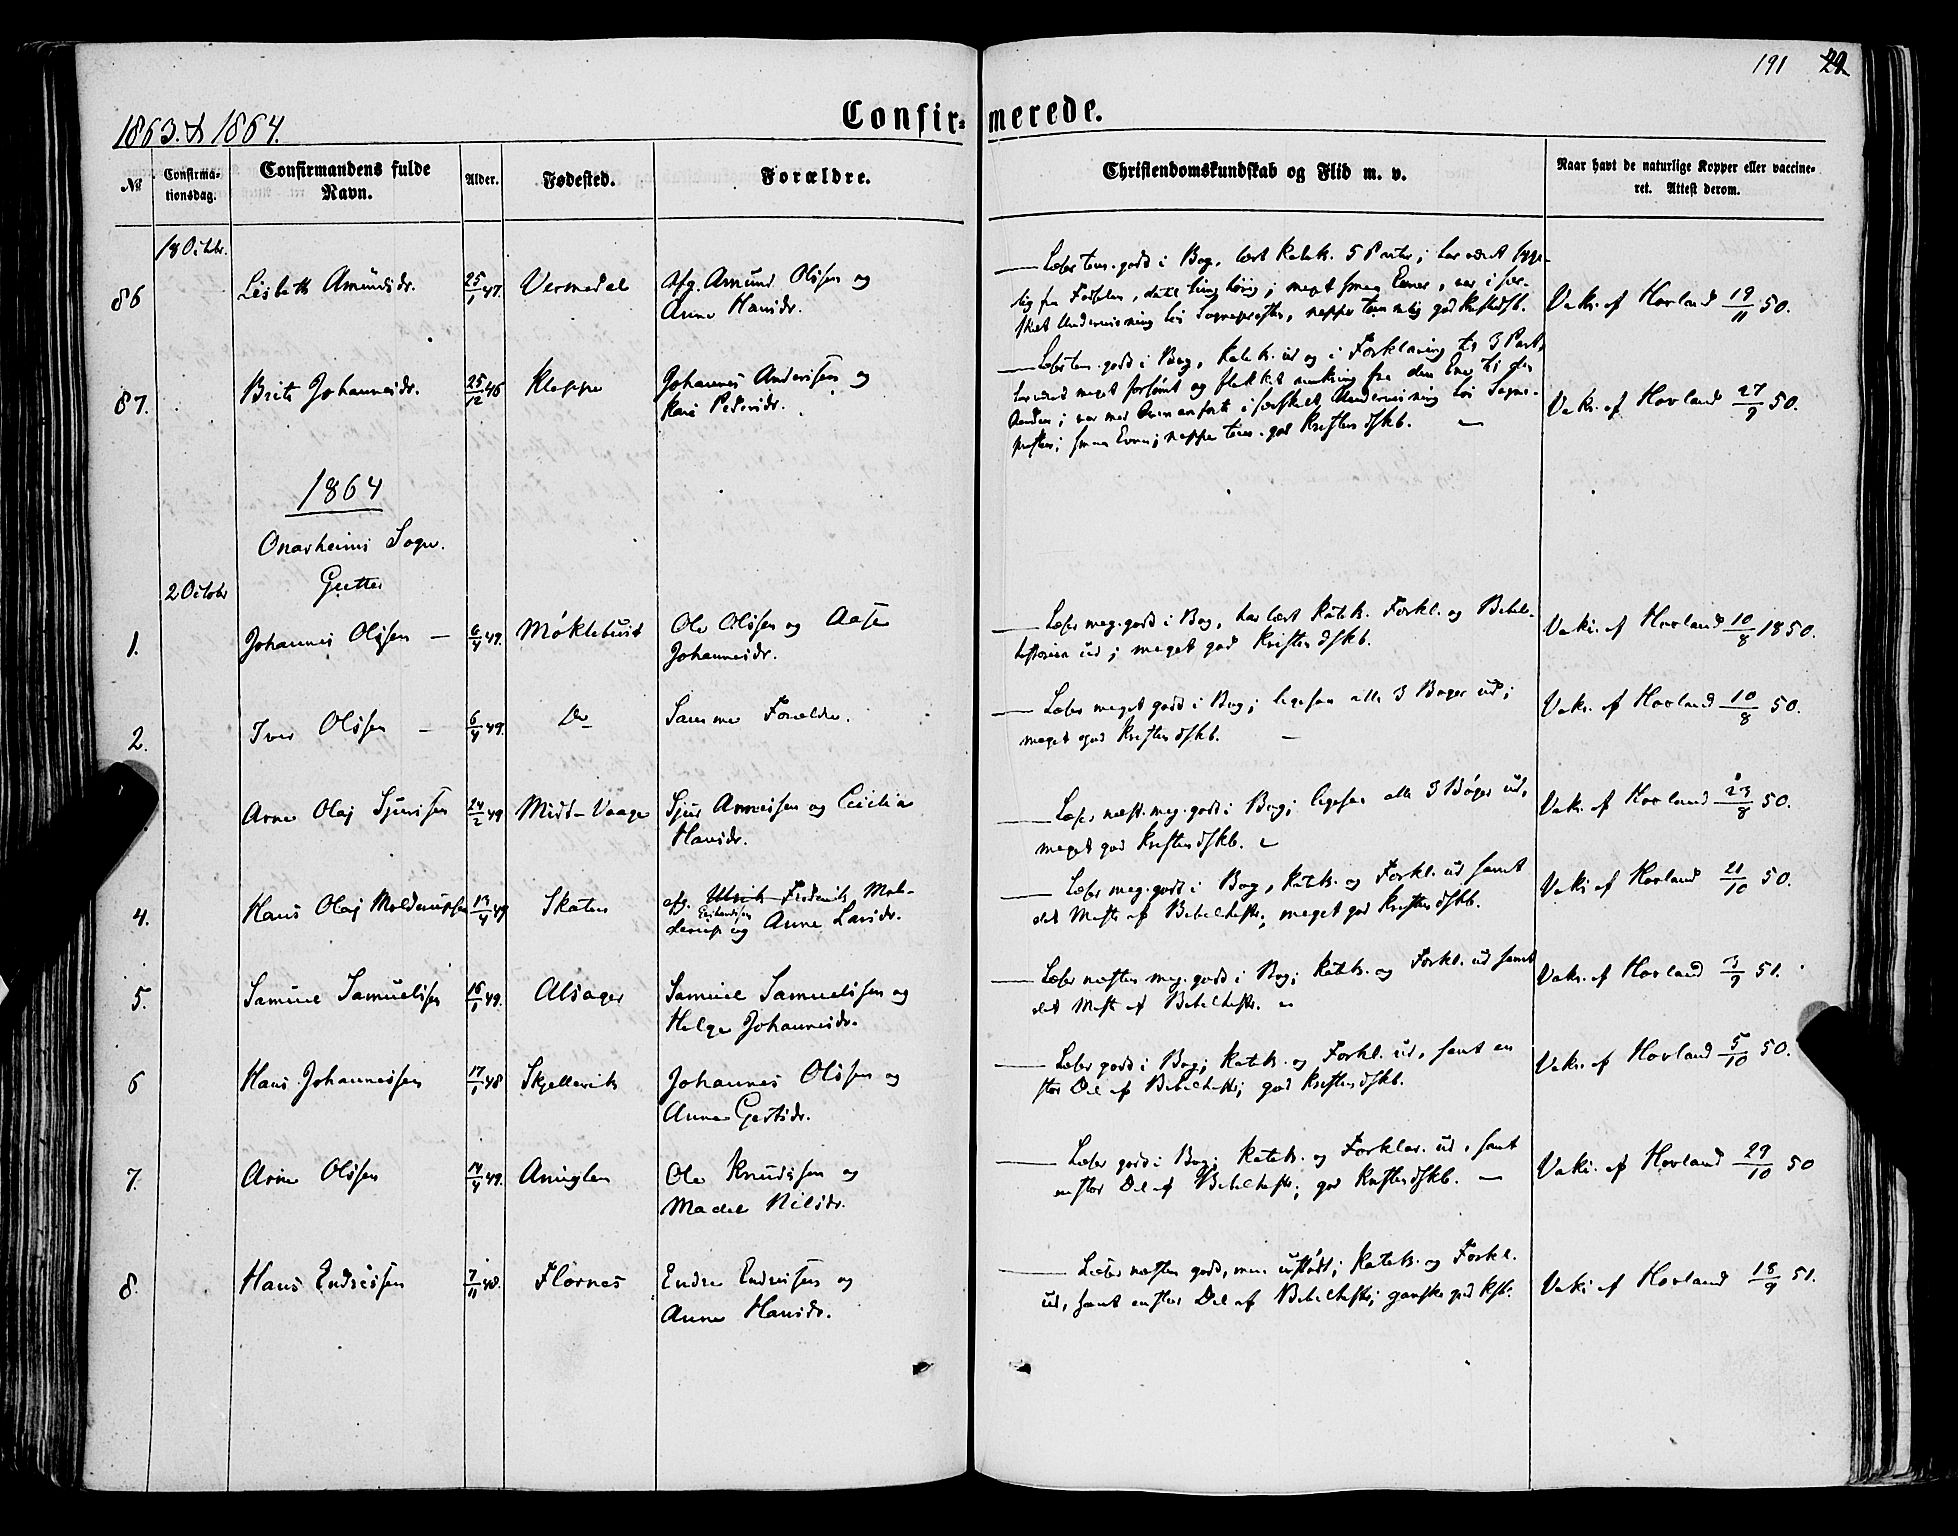 191 22
1863. & 1864.
Confirmerede.
No
Confirmationsdag.
Confirmandens fulde Navn.
Alder.
Fødested.
Forældre.
Christendomskundskab og Flid m. v.
Naar havt de naturlige Kopper eller vaccineret. Attest derom.
18 Octbr.
86 Lisbeth Amundsdr. 25/1 47. Vermedal Afg. Amund Olssen og
Anna Hansdr.
— Læser tem. godt i Bog, lært Katek. 5 Parter; har været syge-
lig fra Fødselen, datil tung hørig; meget smaa Evner, var i sær-
skilt Underviisning hos Sognepresten, neppe temmelig god Kristdskb.
Vaks. af Hovland 19/11 50.
87. Brite Johannesdr. 25/12 46 Kleppe Johannes Anderssen og
Kari Pedersdr.
— Læser tem. godt i Bog, Katek. ud og i Forklaring til 3 Part,
har været meget forsømt og flakket omkring fra den Ene til den
Anden; var med Ovenanførte i særskilt Underviisning hos Sogne-
presten; smaa Evner; neppe tem. god Kristendskb. —
Vaks. af Hovland 27/9 50.
1864
Onarheims Sogn.
Gutter
2 Octobr
1. Johannes Olssen — 6/4 49. Møklebust Ole Olssen og Aase
Johannesdr.
— Læser meg. godt i Bog, har lært Katek. Forkl. og Bibel-
historien ud; meget god Kristendskb.
Vaks. af Hovland 10/8 1850.
2. Iver Olssen — 6/4 49. Do Samme Forældre.
— Læser meget godt i Bog; ligesaa alle 3 Bøger ud;
meget god Kristendskb. —
Vaks. af Hovland 10/8 50.
Arne Olaj Sjurssen 24/2 49 Midt-Vaage Sjur Arnessen og Cecilia
Hansdr.
— Læser næst. meg. godt i Bog; ligesaa alle 3 Bøger ud,
meget god Kristendskb.
Vaks. af Hovland 23/8 50.
4. Hans Olaj Molderupsen 13/4 49 Skaten afg. Ulrich Frederik Mol-
derup og Anne Larsdr.
— Læser meg. godt i Bog, Katek. og Forkl. ud samt
det Meste af Bibelhistr., meget god Kristendskb.
Vaks. af Hovland 21/10 50.
5. Samuel Samuelssen 16/1 49. Alsager Samuel Samuelssen og
Helga Johannesdr.
— Læser næsten meg. godt i Bog; Katek. og Forkl. ud samt
det Meste af Bibelhistr.
Vaks. af Hovland 3/9 51.
6 Hans Johannessen 17/1 48 Skjellevik Johannes Olssen og
Anna Gjertsdr.
— Læser godt i Bog; Katek. og Forkl. ud, samt en
stor Del af Bibelhistr; god Kristendskb.
Vaks. af Hovland 5/10 50.
7. Arne Olssen 14/4 49. Anuglen Ole Knudssen og
Madel Nilsdr.
— Læser godt i Bog; Katek. og Forklar. ud, samt
en stor Del af Bibelhistr; god Kristendskb. —
Vaks. af Hovland 29/10 50
8. Hans Endressen 7/11 48. Flornes Endre Endressen og
Anna Hansdr.
— Læser næsten godt, men ustødt; Katek. og Forkl.
ud, samt en stor Del af Bibelhistr; ganske god Kst.
Vaks. af Hovland 18/9 51.